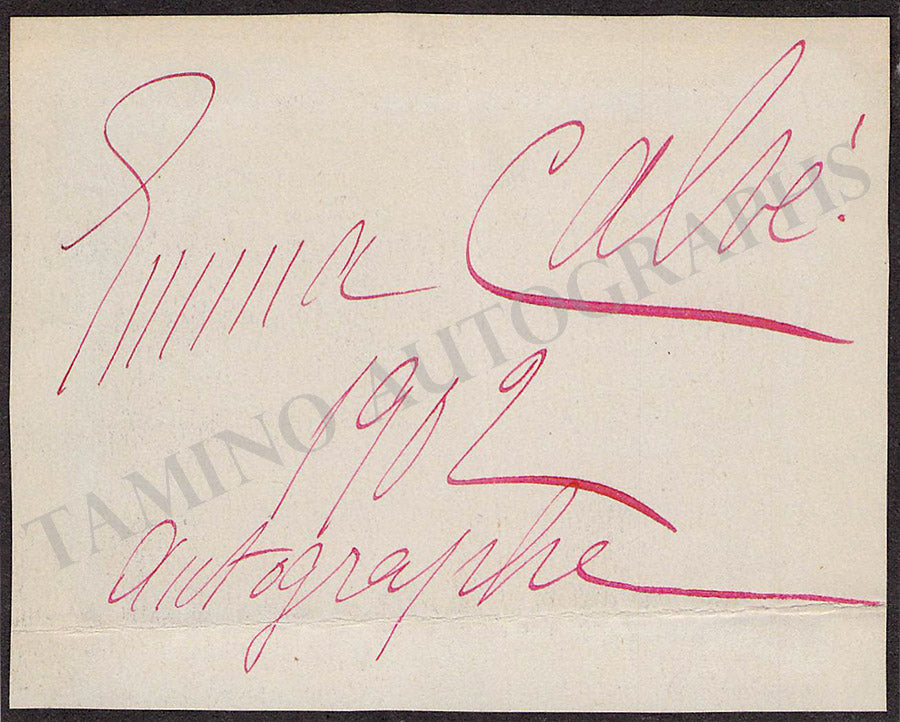 Emma Calvé
1902
autographe
TAMINO AUTOGRAPHS